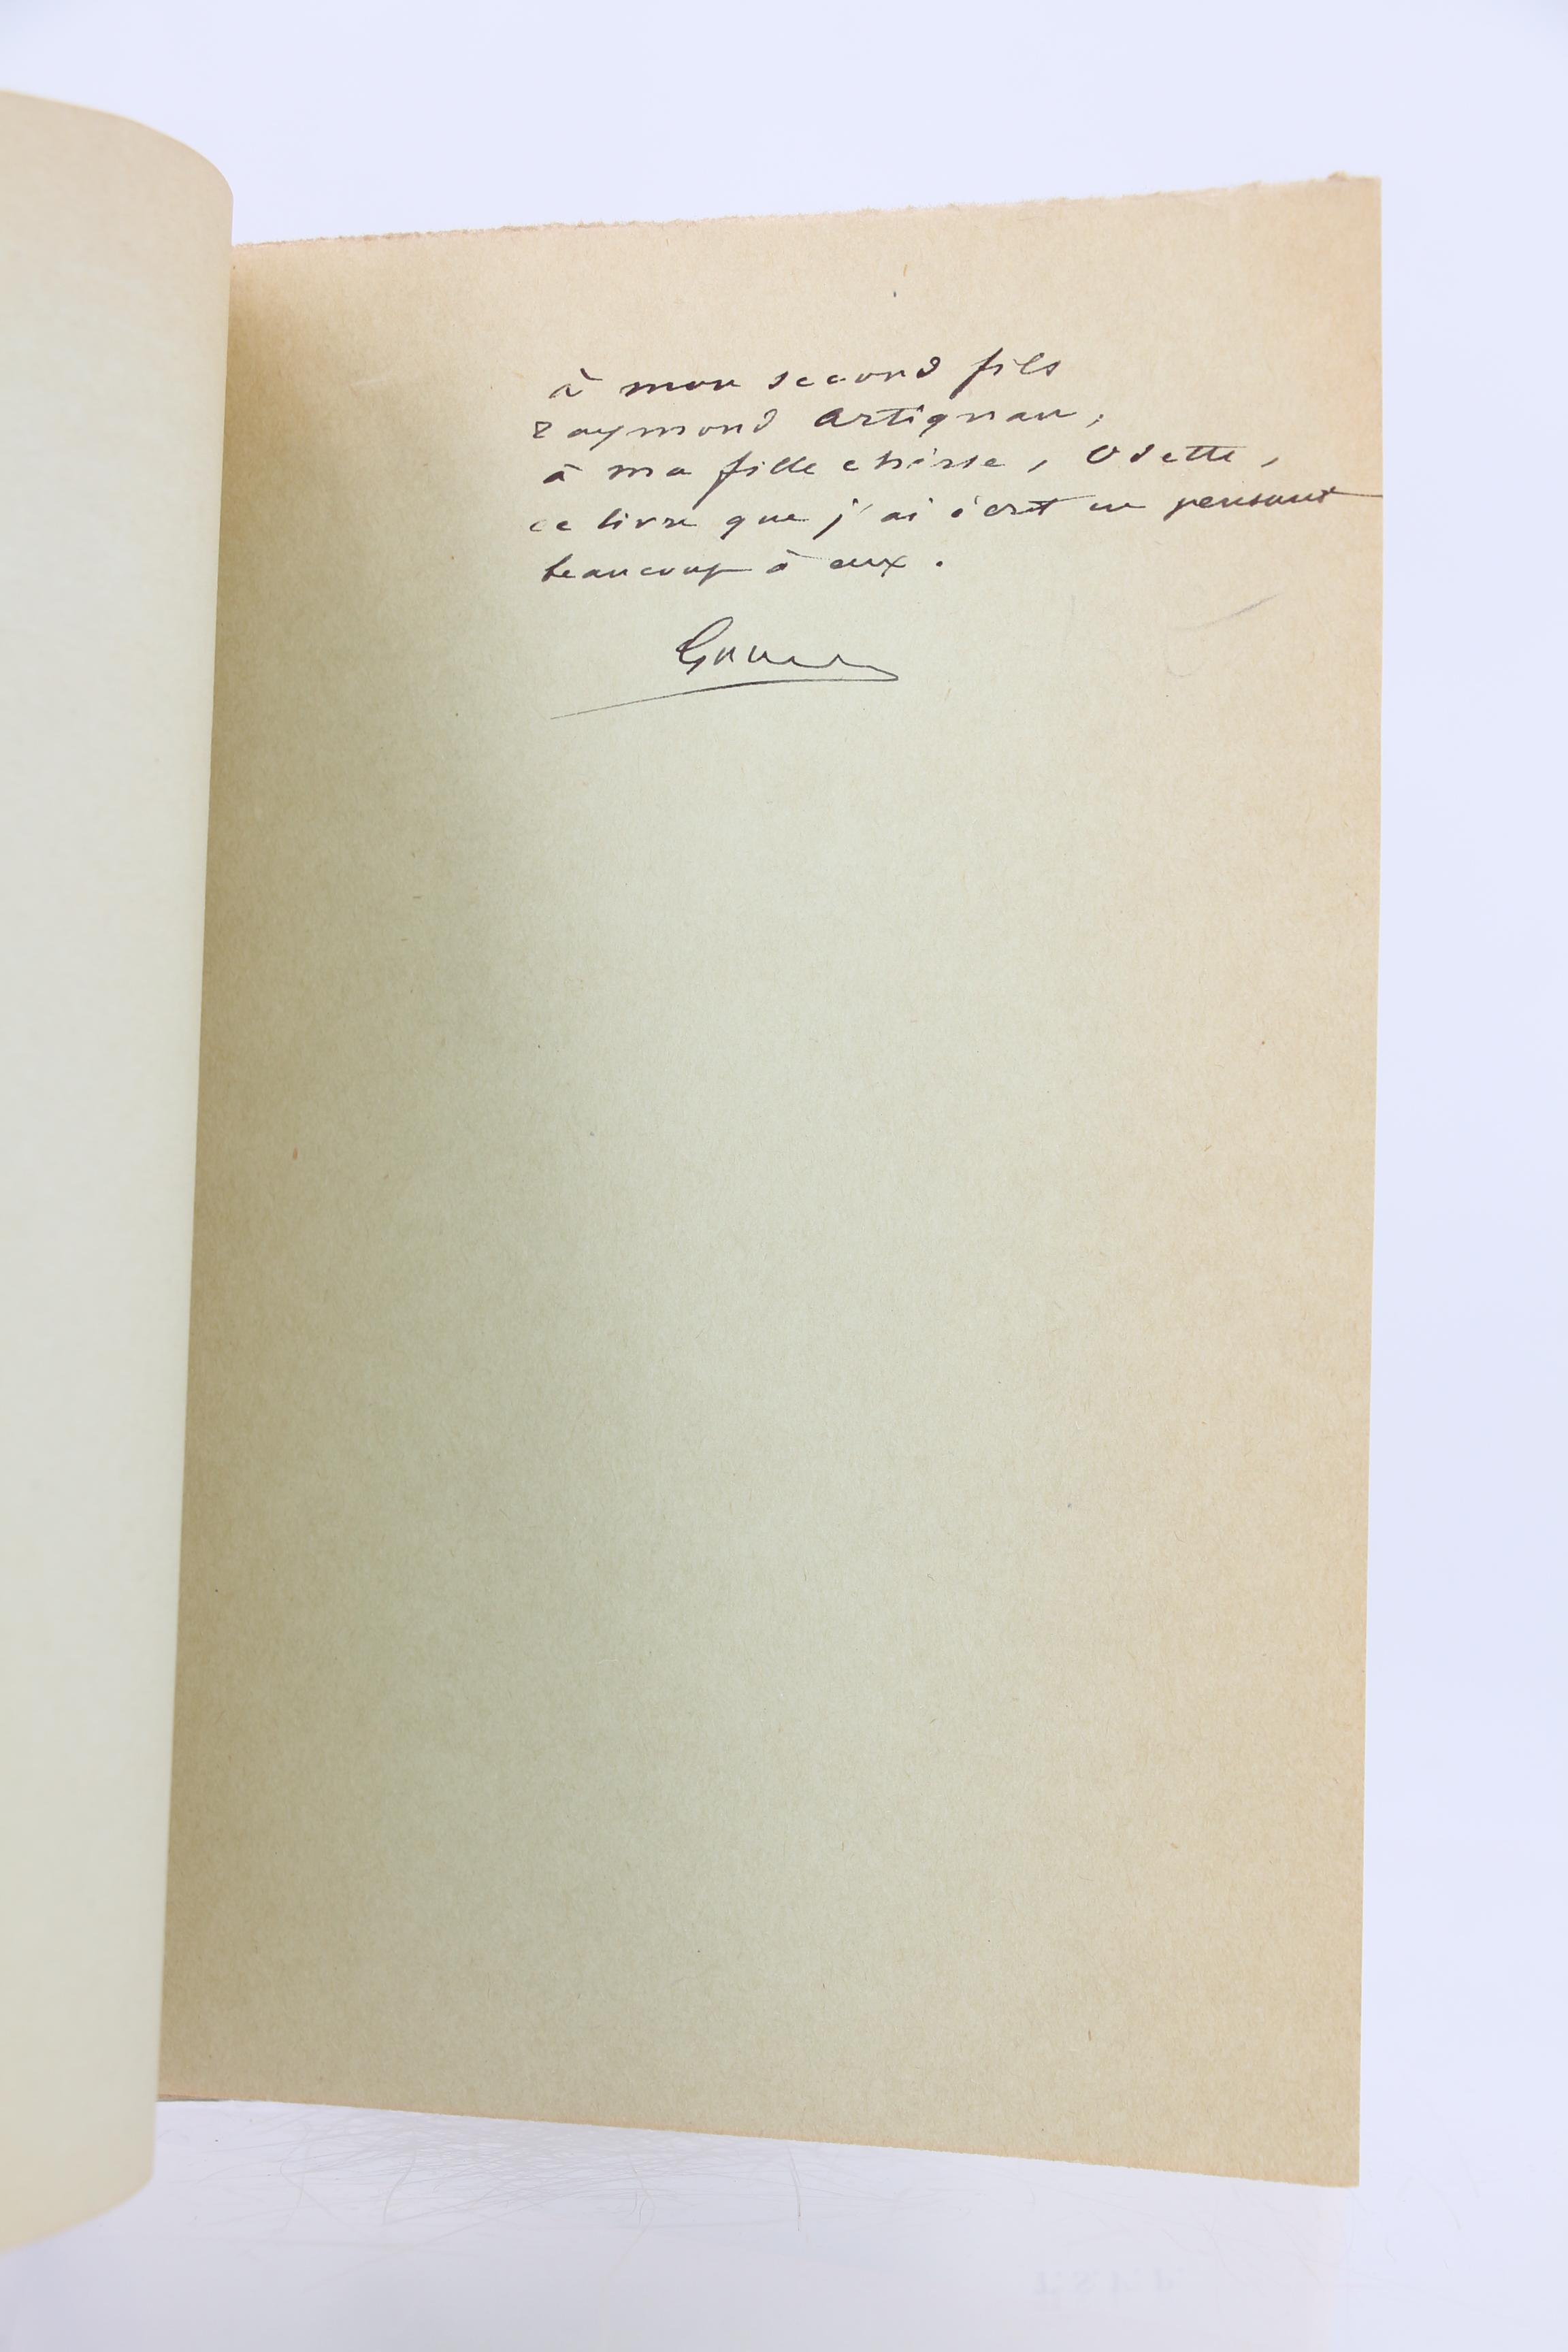 à mon second fils
Raymond Artignan,
à ma fille chérie, Odette,
ce livre que j'ai écrit en pensant
beaucoup à eux.